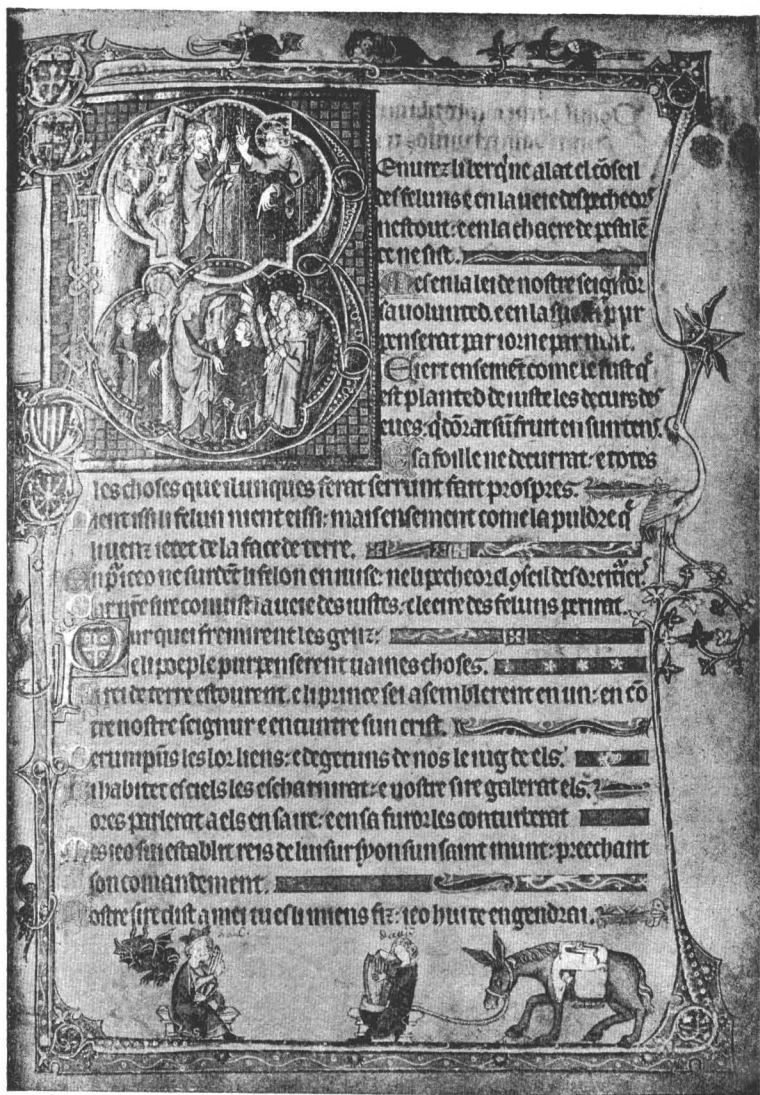 Enurez li ber q̓ ne alat el cōseil
des feluns: e en la ueie des pecheors
nestout: e en la chaere de pestilē
ce ne sist.
Mes en la lei de nostre seignor
sa uolunted. e en la sue lei pur
penserat par iorn e par nuit.
E iert ensemēt come le fust q̓
est planted de iuste les decurs des
eues: q̓ dōrat sun fruit en sun tens.
E sa foille ne decurrat: e totes
les choses que il unques ferat serrunt fait prospres.
Nient issi li felun nient eissi: mais ensement come la puldre q̓
li uenz iettet de la face de terre.
En pͥ iceo ne surdēt li felon en iuise: ne li pecheor el ꝯseil des dreitͥers.
Kar nr̄e sire conuist la ueie des iustes: e le eire des feluns perirat.
Pur quei fremirent les genz:
e li poeple purpenserent uaines choses.
Li rei de terre estourent. e li prince sei asemblerent en un: en cō
tre nostre seignur e encuntre sun crist.
Derumpūs les lor liens: e degetuns de nos le iug de els.
Ki habitet es ciels les escharnirat: e nostre sire gaberat els.
Lores parlerat a els en sa ire: e en sa furor les conturberat
Mes ieo sui establit reis de lui sur syon sun saint munt: preechant
son comandement.
Nostre sire dist a mei tu es li miens fiz: ieo hui te engendrai.